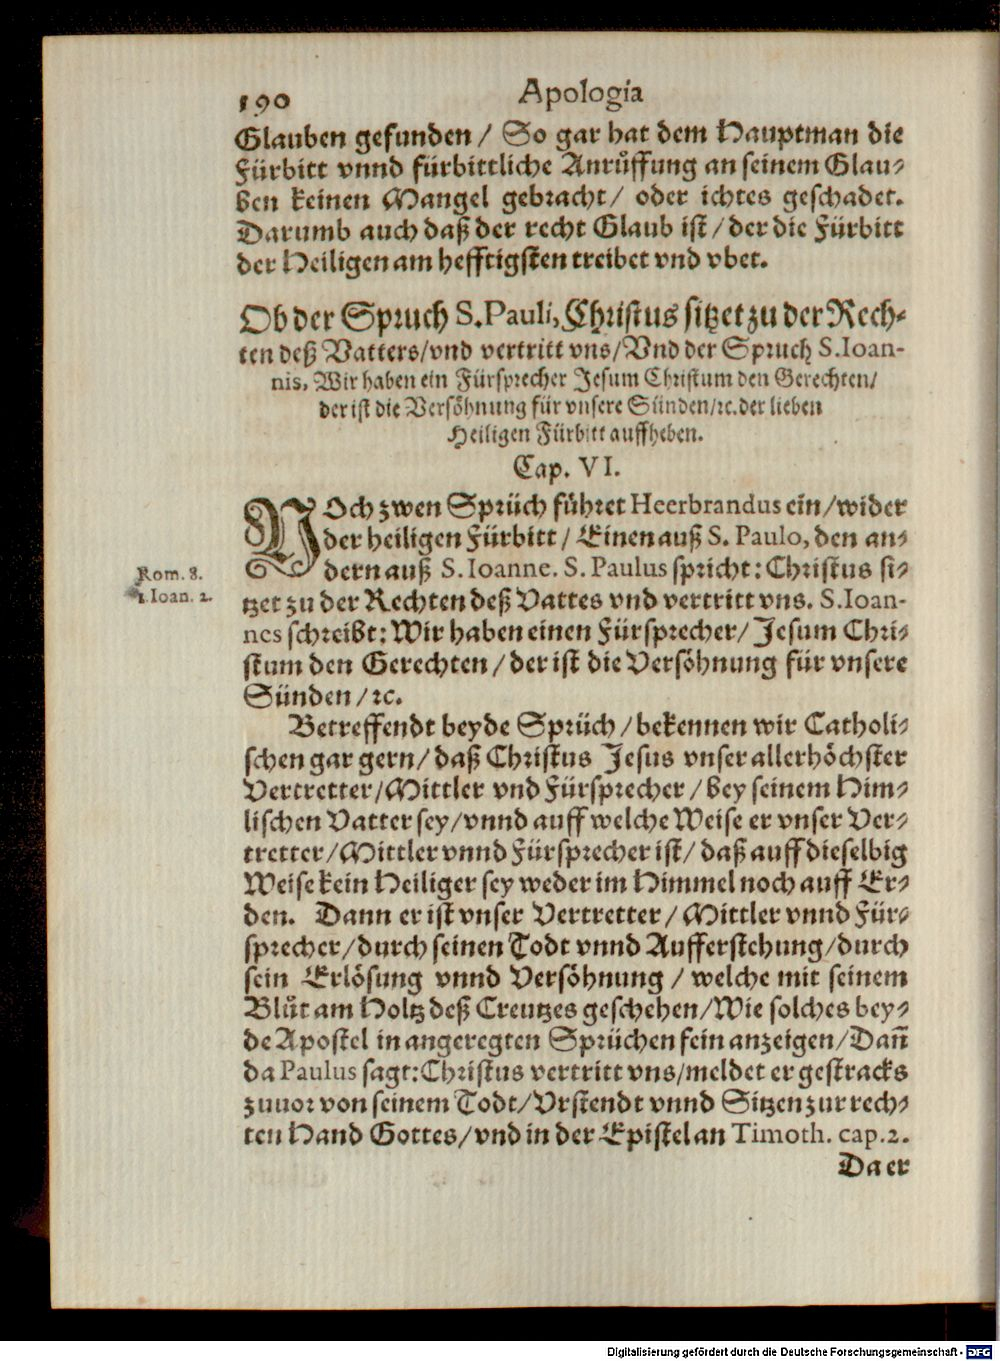 190 Apologia
Glauben gefunden / So gar hat dem Hauptman die
Fürbitt vnnd fürbittliche Anrůffung an seinem Glau-
ben keinen Mangel gebracht / oder ichtes geschadet.
Darumb auch daß der recht Glaub ist / der die Fürbitt
der Heiligen am hefftigsten treibet vnd vbet.
Ob der Spruch S. Pauli, Christus sitzet zu der Rech-
ten deß Vatters/vnd vertritt vns/Vnd der Spruch S. Ioan-
nis, Wir haben ein Fürsprecher Jesum Christum den Gerechten/
der ist die Versöhnung für vnsere Sünden/ꝛc. der lieben
Heiligen Fürbitt auffheben.
Cap. VI.
NOch zwen Sprüch führet Heerbrandus ein/wider
der heiligen Fürbitt / Einen auß S. Paulo, den an-
dern auß S. Ioanne. S. Paulus spricht: Christus si-
Rom. 8.
1. Ioan. 2.
tzet zu der Rechten deß Vattes vnd vertritt vns. S. Ioan-
nes schreibt: Wir haben einen Fürsprecher/ Jesum Chri-
stum den Gerechten / der ist die Versöhnung für vnsere
Sünden / ꝛc.
Betreffendt beyde Sprüch / bekennen wir Catholi-
schen gar gern/ daß Christus Jesus vnser allerhöchster
Vertretter/Mittler vnd Fürsprecher / bey seinem Him-
lischen Vatter sey/vnnd auff welche Weise er vnser Ver-
tretter/Mittler vnnd Fürsprecher ist/ daß auff dieselbig
Weise kein Heiliger sey weder im Himmel noch auff Er-
den. Dann er ist vnser Vertretter / Mittler vnnd Für-
sprecher/durch seinen Todt vnnd Aufferstehung/durch
sein Erlösung vnnd Versöhnung / welche mit seinem
Blůt am Holtz deß Creutzes geschehen/Wie solches bey-
de Apostel in angeregten Sprüchen fein anzeigen/Dañ
da Paulus sagt: Christus vertritt vns/meldet er gestracks
zuuor von seinem Todt/Vrstendt vnnd Sitzen zur rech-
ten Hand Gottes/vnd in der Epistel an Timoth. cap. 2.
Da er
Digitalisierung gefördert durch die Deutsche Forschungsgemeinschaft - DFG